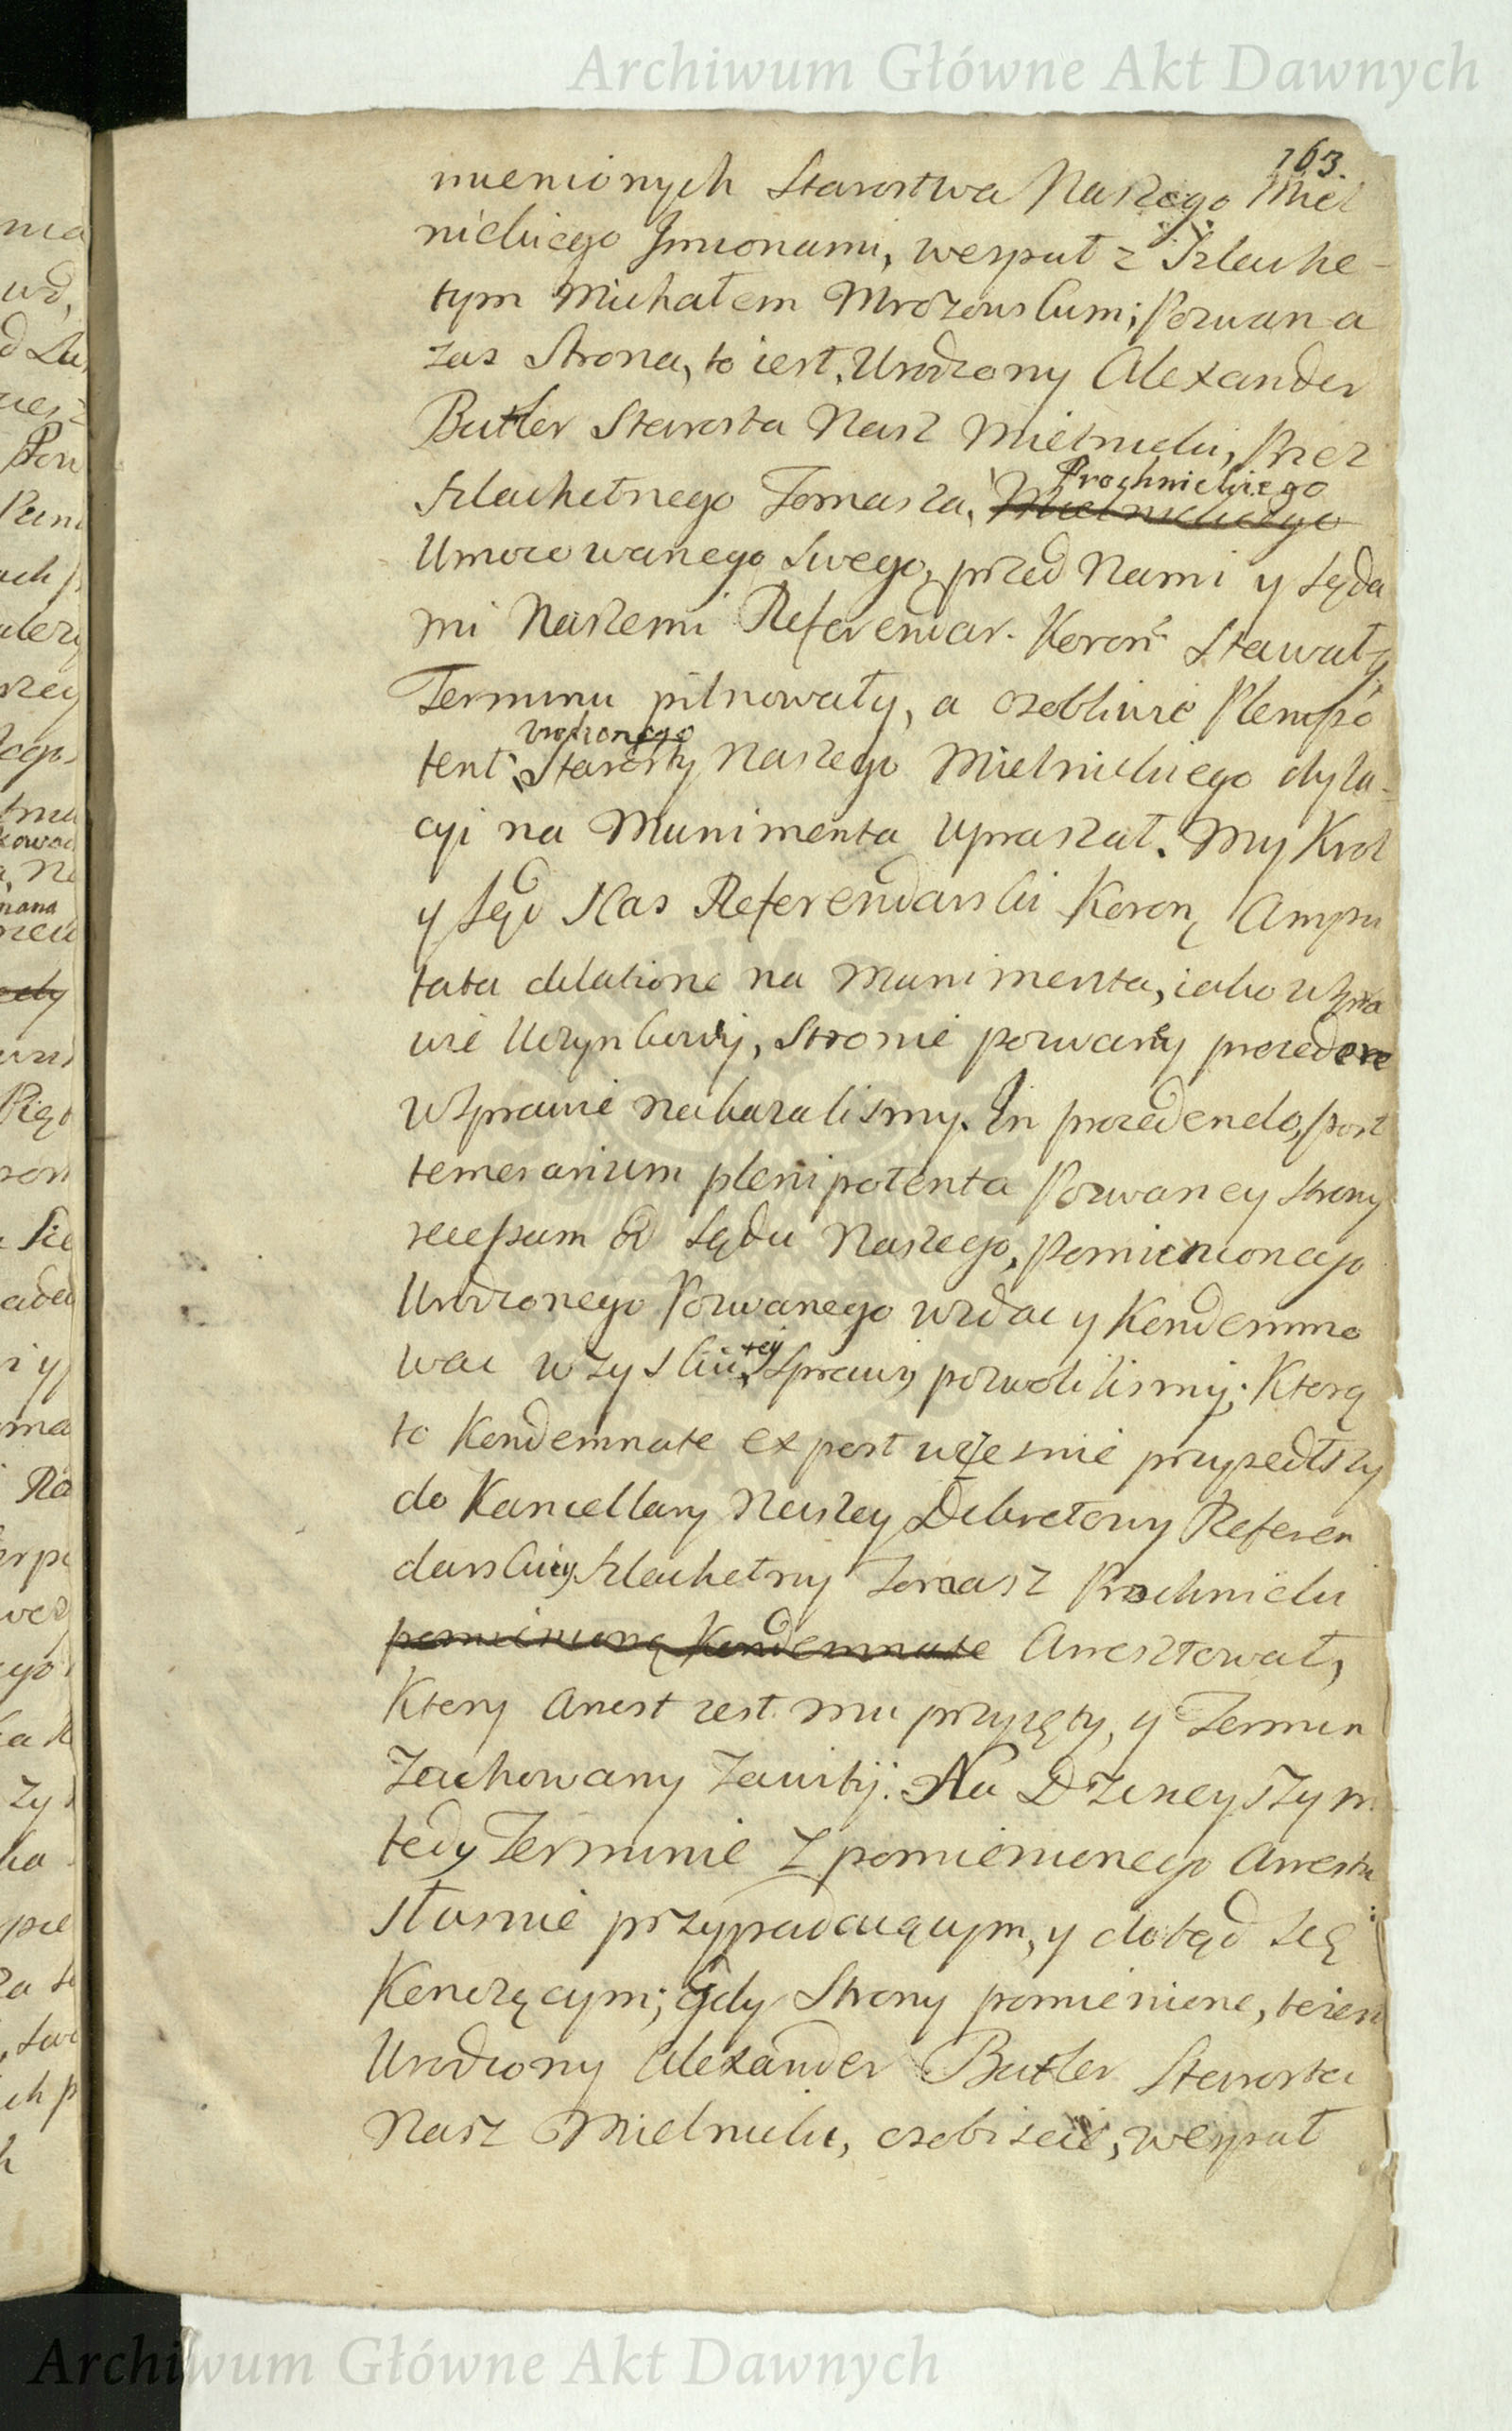 Archiwum Główne Akt Dawnych
163.
mienionych Starostwa Naszego Miel
nickiego Imionami, wespuł z Szlache-
tym Michałem Mrozowskim; Pozwana
zas Strona, to iest, Urodzony Alexander
Butler Starosta Nasz Mielnicki, Przez
Prochnickiego
Szlachetnego Tomasza, Mielnickiego
Umocowanego Swego, przed Nami y Sąda
mi Naszemi Referendar. Koron Stawały,
Terminu pilnowały, a osobliwie Plenipo
Urodzonego
tent Starosty Naszego Mielnickiego dyla-
cyi na Munimenta upraszał. My Krol
y Sąd Nas Referendarski Koron Ampu
tata dilatione na Munimenta, iako w Spra
wie Uczynkowy, Stronie pozwany procedere
w Sprawie nakazalismy. In procedendo, post
temerarium plenipotenta Pozwaney Strony
recessum od Sądu Naszego, Pomienionego
Urodzonego Pozwanego wzdac y Kondemno
tey
wac w zysku Sprawy pozwolilismy; Ktorą
to Kondemnate ex post wczesnie przyszedłszy
do Kancellary Naszey Dekretowy Referen
darskiey, Szlachetny Tomasz Prochnicki
pomienioną Kondemnate Aresztował,
Ktory Arest iest mu przyięty, y Termin
Zachowany Zawity. Na Dzineyszym
tedy Terminie z pomienionego Arestu
słusnie przypadaiącym, y dotąd się
Kończącym; Gdy Strony pomienione, to iest
Urodzony Alexander Butler Starosta
Nasz Mielnicki, osobiscie, wespuł
Archiwum Główne Akt Dawnych